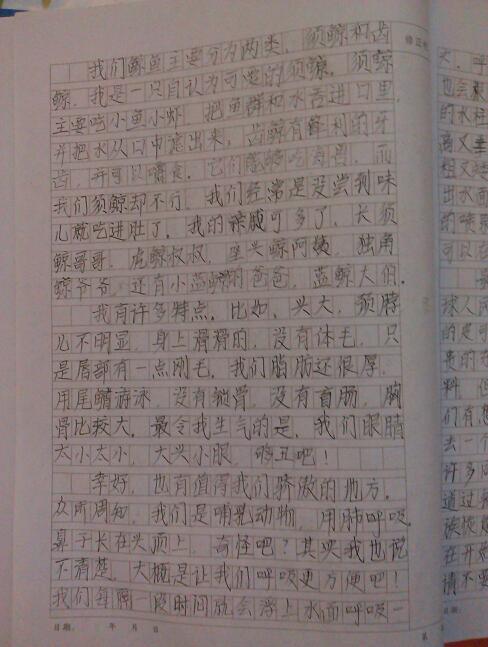 我们鲸鱼主要分为两类，须鲸和齿
鲸，我是一只自认为可爱的须鲸。须鲸
主要吃小鱼小虾，把鱼群和水吞进口里，
并把水从口中滤出来，齿鲸有锋利的牙
齿，并可以嚼食，它们能够吃海兽，而
我们须鲸却不行，我们经常是没尝到味
儿就吃进肚了，我的亲戚可多了，长须
鲸哥哥，虎鲸叔叔，座头鲸阿姨，独角
鲸爷爷，还有小蓝鲸的爸爸，蓝鲸大伯。
我有许多特点，比如，头大，颈脖
儿不明显，身上滑滑的，没有体毛，只
是唇部有一点刚毛，我们脂肪还很厚，
用尾鳍游泳，没有锁骨，没有盲肠，胸
骨比较大，最令我生气的是，我们眼睛
太小太小，大头小眼，够丑吧！
幸好，也有值得我们骄傲的地方，
众所周知，我们是哺乳动物，用肺呼吸，
鼻子长在头顶上，奇怪吧？其实我也说
不清楚，大概是让我们呼吸更方便吧！
我们每隔一段时间就会浮上水面呼吸一
日期： 年 月 日
第
修正
大，呼
也会
的水柱
高又
粗又
出水面
的喷
可以在
球人民
的是可
贵的
料，但
们有
去一个
许多
道过
在开始
请不要
日期：